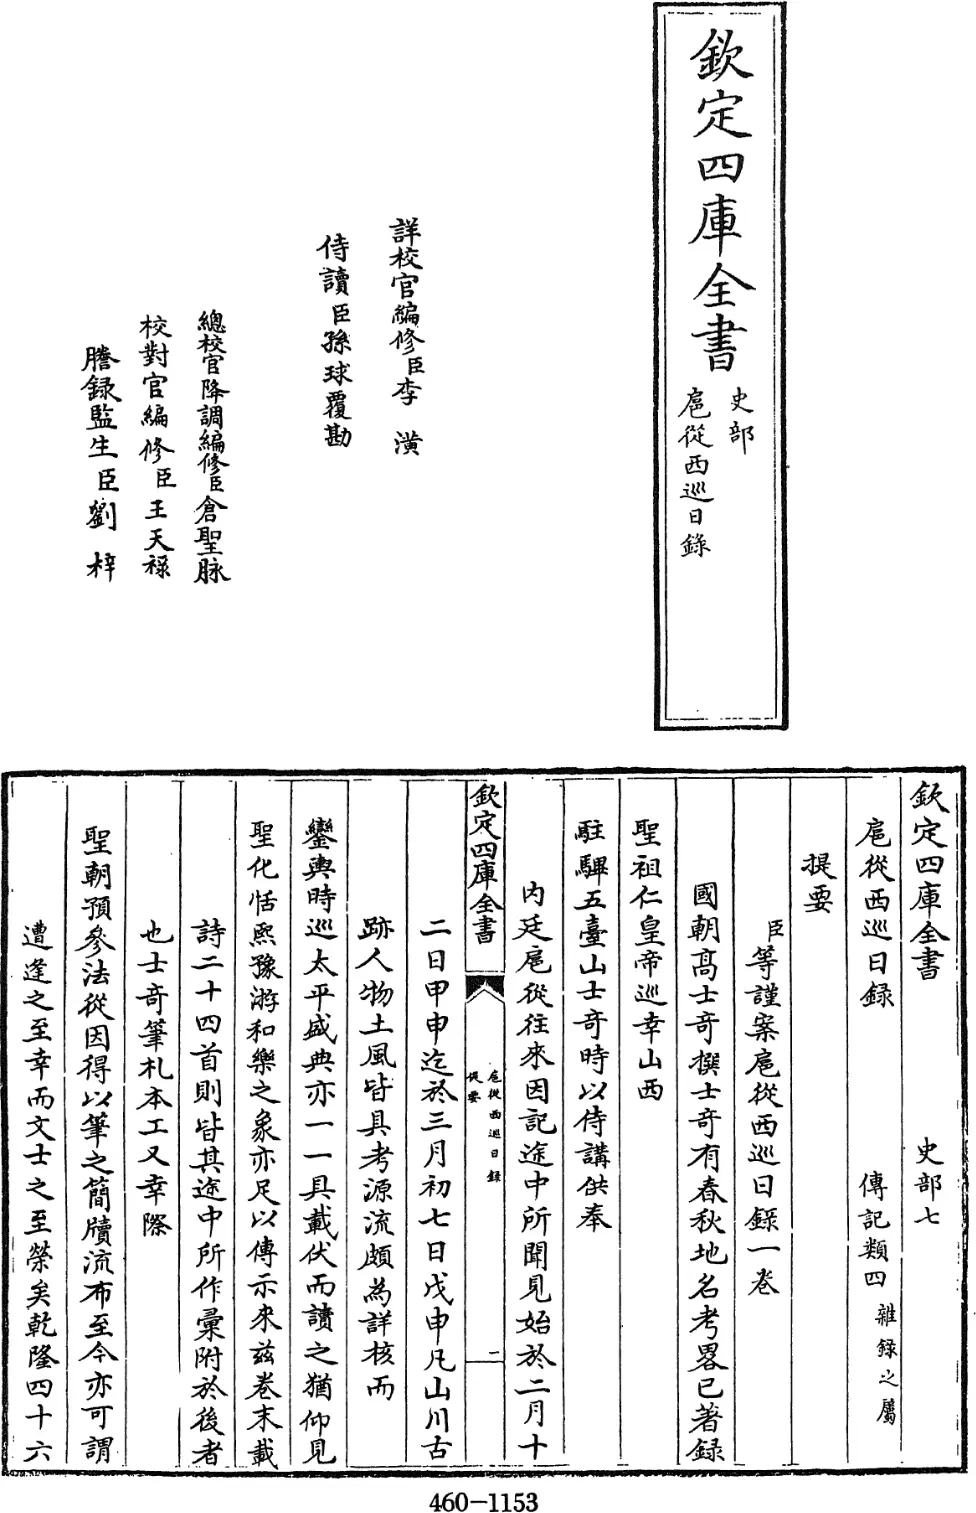 欽定四庫全書
史部
扈從西巡日錄
詳校官編修臣李潢
侍讀臣孫球覆勘
總校官降調編修臣倉聖脉
校對官編修臣王天祿
謄錄監生臣劉梓
欽定四庫全書 史部七
扈從西巡日錄 傳記類四 雜錄之屬
提要
臣等謹案扈從西巡日錄一卷
國朝高士奇撰士奇有春秋地名考畧已著錄
聖祖仁皇帝巡幸山西
駐驆五臺山士奇時以侍講供奉
內廷扈從往來因記途中所聞見始於二月十
欽定四庫全書 扈從西巡日錄 提要 一
二日甲申迄於三月初七日戊申凡山川古
跡人物土風皆具考源流頗為詳核而
鑾輿時巡太平盛典亦一一具載伏而讀之猶仰見
聖化恬熙豫游和樂之象亦足以傳示來茲卷末載
詩二十四首則皆其途中所作彙附於後者
也士奇筆札本工又幸際
聖朝預參法從因得以筆之簡牘流布至今亦可謂
遭逢之至幸而文士之至榮矣乾隆四十六
460-1153